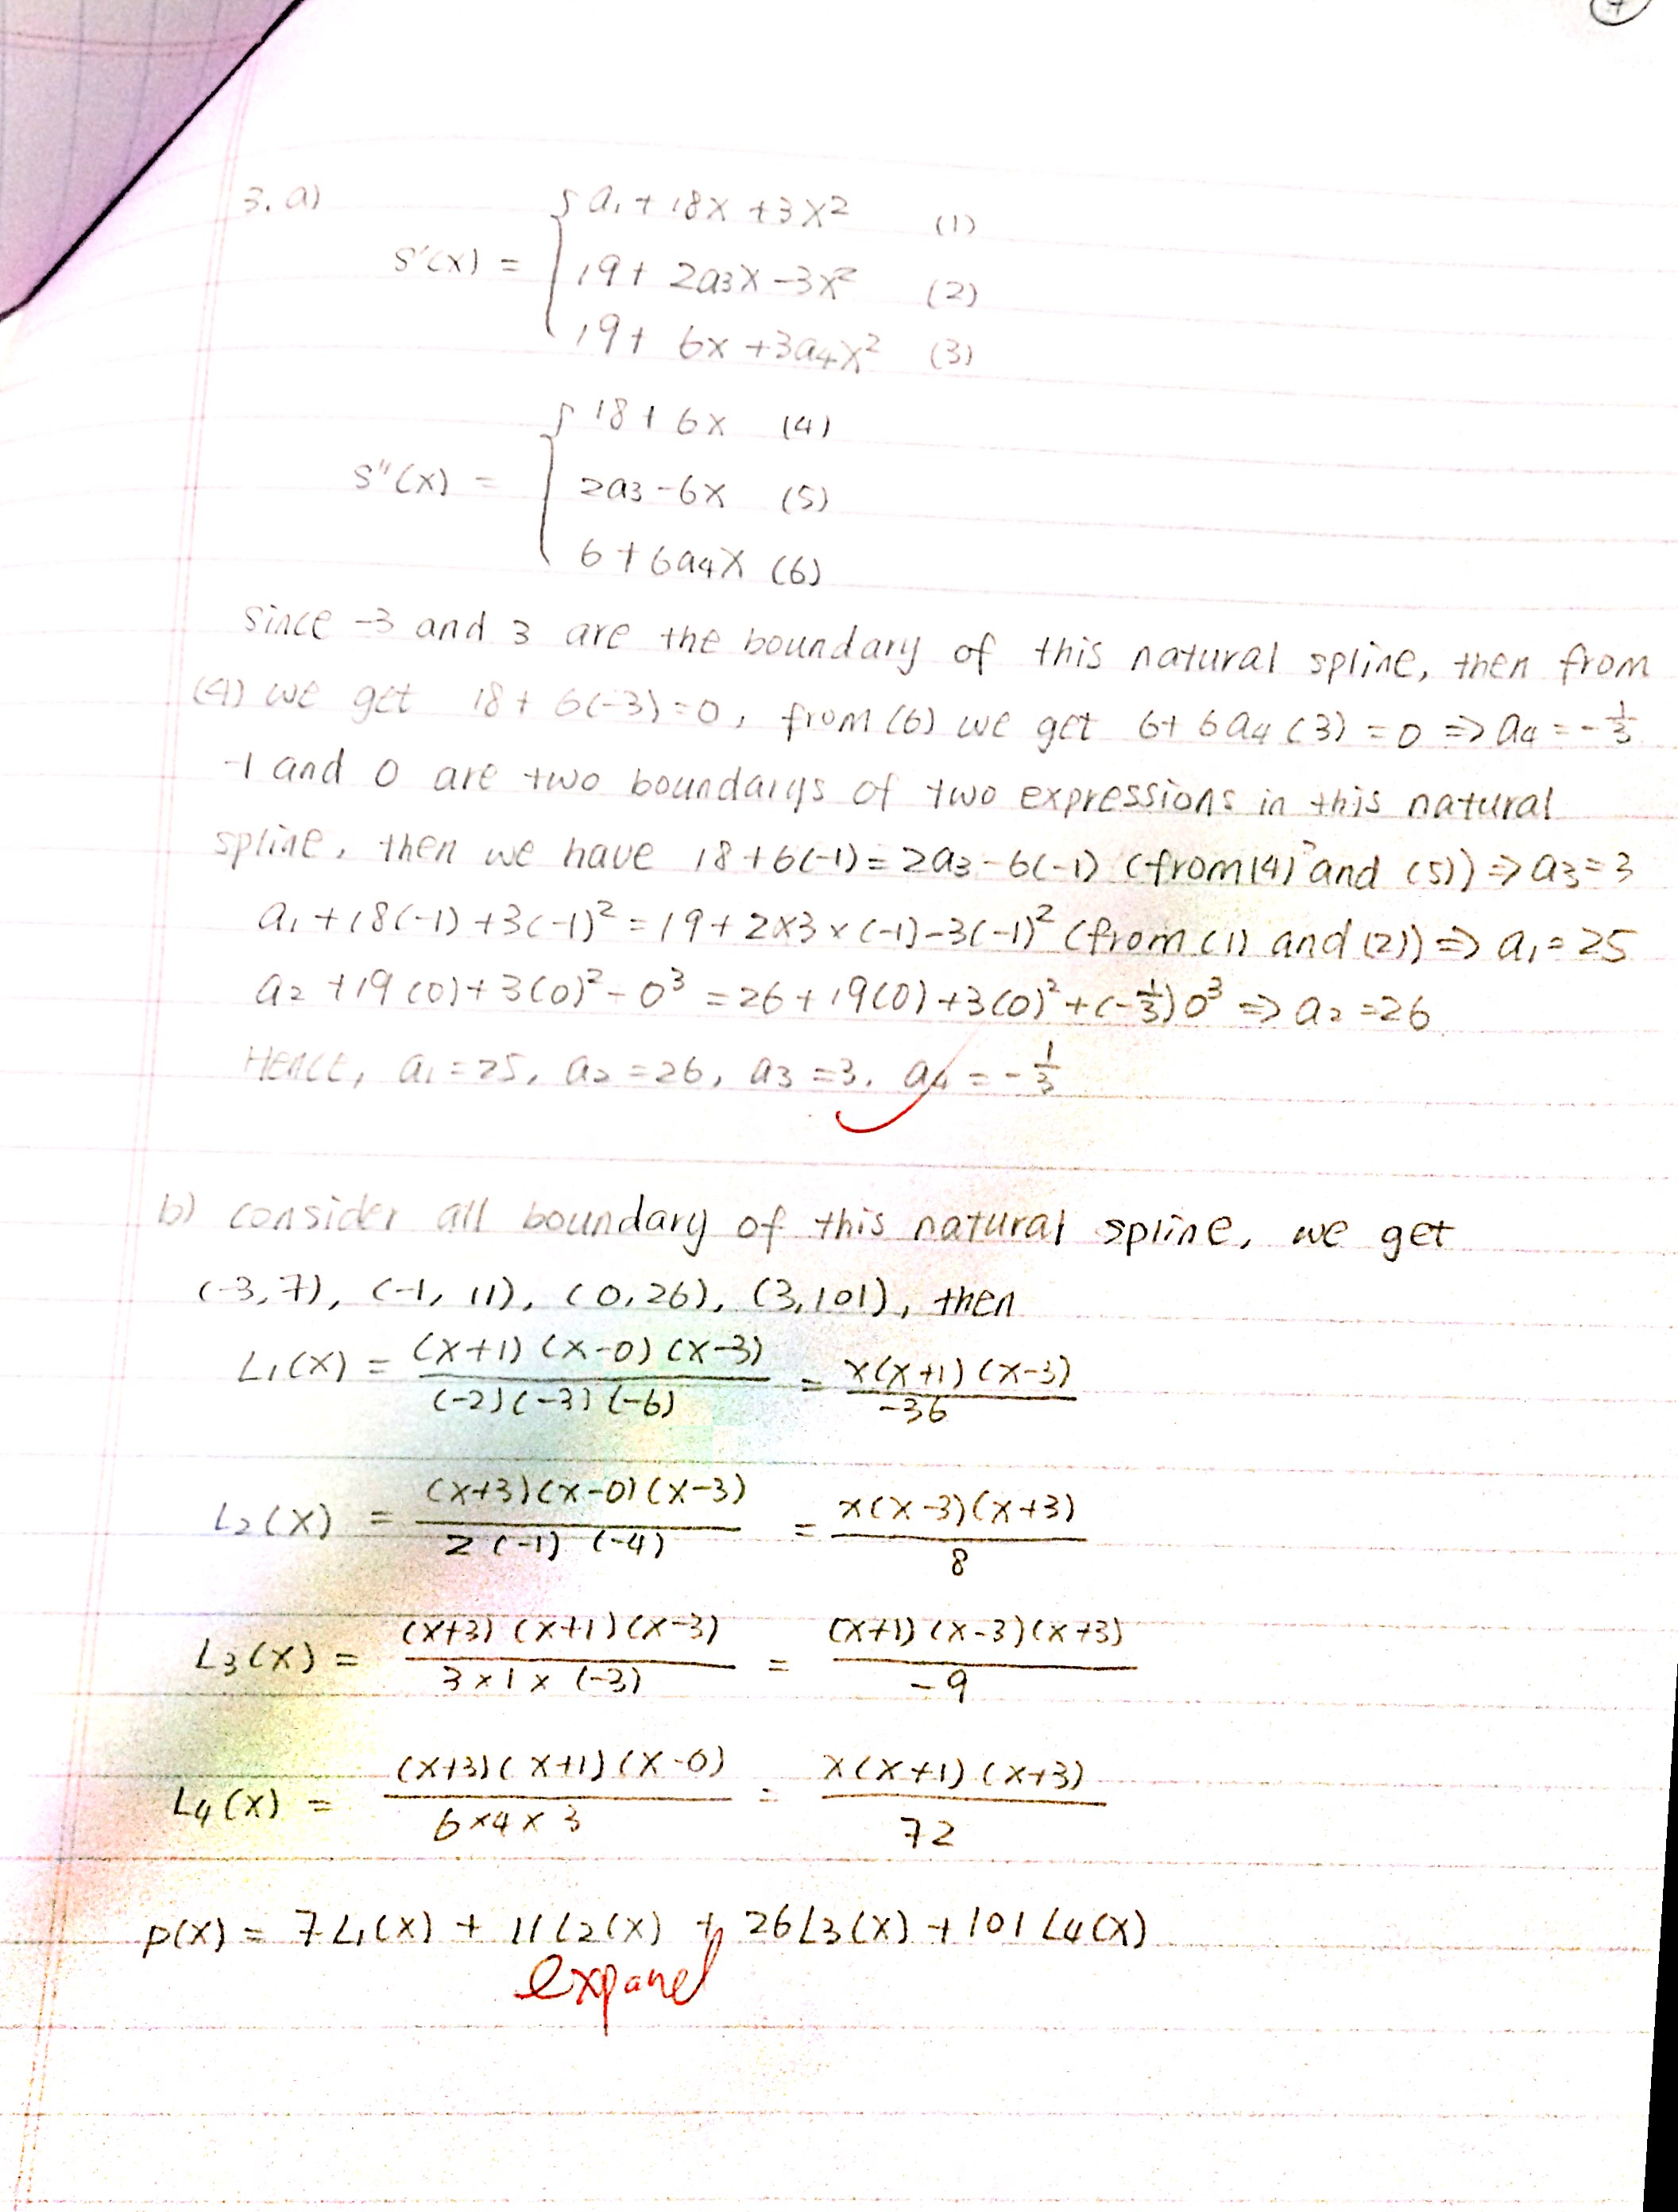 3. a)
S'(x) = { a₁ + 18x + 3x² (1)
19 + 2a₃x - 3x² (2)
19 + 6x + 3a₄x² (3)
S"(x) = { 18 + 6x (4)
2a₃ - 6x (5)
6 + 6a₄x (6)
since -3 and 3 are the boundary of this natural spline, then from
(4) we get 18 + 6(-3) = 0, from (6) we get 6 + 6a₄(3) = 0 => a₄ = -1/3
-1 and 0 are two boundarys of two expressions in this natural
spline, then we have 18 + 6(-1) = 2a₃ - 6(-1) (from (4) and (5)) => a₃ = 3
a₁ + 18(-1) + 3(-1)² = 19 + 2×3×(-1) - 3(-1)² (from (1) and (2)) => a₁ = 25
a₂ + 19(0) + 3(0)² - 0³ = 26 + 19(0) + 3(0)² + (-1/3)0³ => a₂ = 26
Hence, a₁ = 25, a₂ = 26, a₃ = 3, a₄ = -1/3
b) consider all boundary of this natural spline, we get
(-3,7), (-1, 11), (0,26), (3,101), then
L₁(x) = (x+1)(x-0)(x-3) / (-2)(-3)(-6) = x(x+1)(x-3) / -36
L₂(x) = (x+3)(x-0)(x-3) / 2(-1)(-4) = x(x-3)(x+3) / 8
L₃(x) = (x+3)(x+1)(x-3) / 3×1×(-3) = (x+1)(x-3)(x+3) / -9
L₄(x) = (x+3)(x+1)(x-0) / 6×4×3 = x(x+1)(x+3) / 72
p(x) = 7L₁(x) + 11L₂(x) + 26L₃(x) + 101L₄(x)
expand